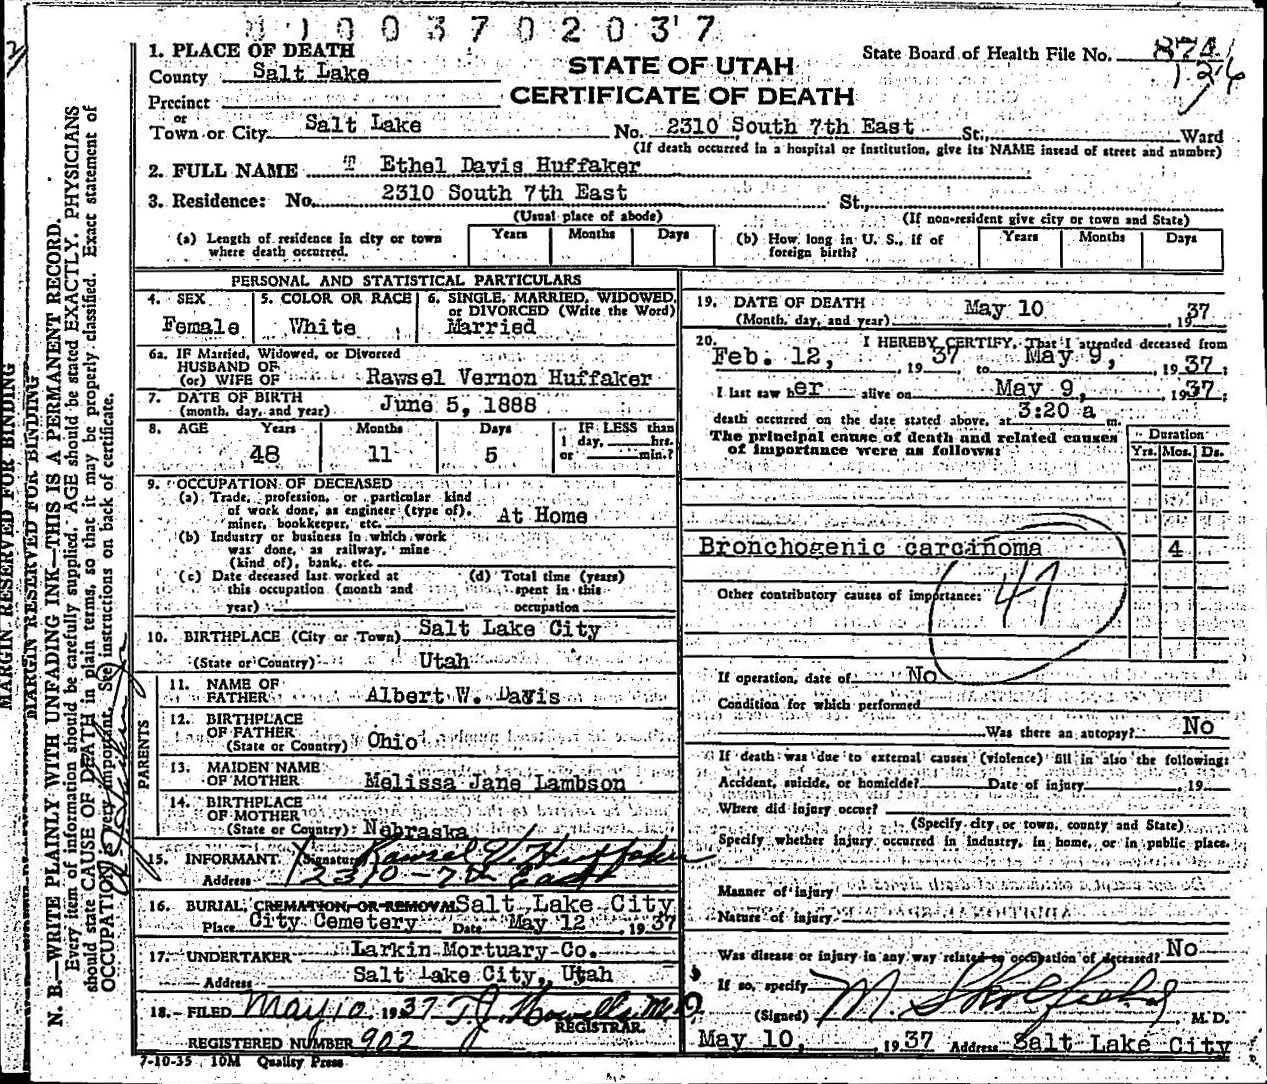 0 1 0 0 3 7 0 2 0 3 7
STATE OF UTAH
CERTIFICATE OF DEATH
State Board of Health File No. 874
126
1. PLACE OF DEATH
County Salt Lake
Precinct
or
Town or City Salt Lake No. 2310 South 7th East St., Ward
(If death occurred in a hospital or institution, give its NAME insead of street and number)
2. FULL NAME T Ethel Davis Huffaker
3. Residence: No. 2310 South 7th East St.,
(Usual place of abode) (If non-resident give city or town and State)
(a) Length of residence in city or town where death occurred. Years Months Days (b) How long in U. S., if of foreign birth? Years Months Days
PERSONAL AND STATISTICAL PARTICULARS
4. SEX Female
5. COLOR OR RACE White
6. SINGLE, MARRIED, WIDOWED, or DIVORCED (Write the Word) Married
6a. IF Married, Widowed, or Divorced
HUSBAND OF
(or) WIFE OF Rawsel Vernon Huffaker
7. DATE OF BIRTH
(month, day, and year) June 5, 1888
8. AGE Years Months Days IF LESS than
1 day, hrs.
or min.?
48 11 5
9. OCCUPATION OF DECEASED
(a) Trade, profession, or particular kind
of work done, as engineer (type of),
miner, bookkeeper, etc. At Home
(b) Industry or business in which work
was done, as railway, mine
(kind of), bank, etc.
(c) Date deceased last worked at
this occupation (month and
year)
(d) Total time (years)
spent in this
occupation
10. BIRTHPLACE (City or Town) Salt Lake City
(State or Country) Utah
PARENTS
11. NAME OF
FATHER Albert W. Davis
12. BIRTHPLACE
OF FATHER
(State or Country) Ohio
13. MAIDEN NAME
OF MOTHER Melissa Jane Lambson
14. BIRTHPLACE
OF MOTHER
(State or Country) Nebraska
15. INFORMANT (Signature) Rawsel V. Huffaker
Address 2310 - 7th East
16. BURIAL, CREMATION, OR REMOVAL Salt Lake City
Place City Cemetery Date May 12 1937
17. UNDERTAKER Larkin Mortuary Co.
Address Salt Lake City, Utah
18. FILED May 10 1937 T.J. Howells M.D.
REGISTRAR.
REGISTERED NUMBER 902
7-10-35 10M Quality Press
19. DATE OF DEATH
(Month, day, and year) May 10, 1937
20. I HEREBY CERTIFY, That I attended deceased from
Feb. 12, 1937 to May 9, 1937;
I last saw her alive on May 9, 1937;
death occurred on the date stated above, at 3:20 a m.
The principal cause of death and related causes
of importance were as follows:
Duration
Yrs. Mos. Ds.
Bronchogenic carcinoma 4
47
Other contributory causes of importance:
If operation, date of No
Condition for which performed
Was there an autopsy? No
If death was due to external causes (violence) fill in also the following:
Accident, suicide, or homicide? Date of injury , 19
Where did injury occur?
(Specify city or town, county and State)
Specify whether injury occurred in industry, in home, or in public place.
Manner of injury
Nature of injury
Was disease or injury in any way related to occupation of deceased? No
If so, specify
(Signed) M. M. D.
May 10, 1937 Address Salt Lake City
MARGIN RESERVED FOR BINDING
MARGIN RESERVED FOR BINDING
N. B.—WRITE PLAINLY WITH UNFADING INK—THIS IS A PERMANENT RECORD.
Every item of information should be carefully supplied. AGE should be stated EXACTLY. PHYSICIANS
should state CAUSE OF DEATH in plain terms, so that it may be properly classified. Exact statement of
OCCUPATION is very important. See instructions on back of certificate.